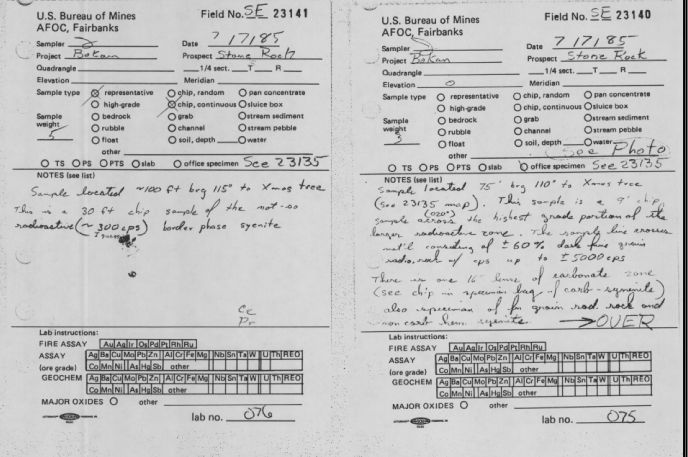 U.S. Bureau of Mines
AFOC, Fairbanks
Field No. SE 23141
Sampler
Date 7/17/85
Project Bokan
Prospect Stone Rock
Quadrangle
1/4 sect. T R
Elevation
Meridian
Sample type representative chip, random pan concentrate
high-grade chip, continuous sluice box
Sample weight 5
bedrock grab stream sediment
rubble channel stream pebble
float soil, depth water
other
TS PS PTS slab office specimen See 23135
NOTES (see list)
Sample located ~100 ft brg 115° to Xmas tree
This is a 30 ft chip sample of the not-so
radioactive (~300 cps) border phase syenite
Ce
Pr
Lab instructions:
FIRE ASSAY Au Ag Ir Os Pd Pt Rh Ru
ASSAY Ag Ba Cu Mo Pb Zn Al Cr Fe Mg Nb Sn Ta W U Th REO
(ore grade) Co Mn Ni As Hg Sb other
GEOCHEM Ag Ba Cu Mo Pb Zn Al Cr Fe Mg Nb Sn Ta W U Th REO
Co Mn Ni As Hg Sb other
MAJOR OXIDES other
lab no. 076
U.S. Bureau of Mines
AFOC, Fairbanks
Field No. SE 23140
Sampler
Date 7/17/85
Project Bokan
Prospect Stone Rock
Quadrangle
1/4 sect. T R
Elevation
Meridian
Sample type representative chip, random pan concentrate
high-grade chip, continuous sluice box
Sample weight
bedrock grab stream sediment
rubble channel stream pebble
float soil, depth water
See Photo
other
TS PS PTS slab office specimen See 23135
NOTES (see list)
Sample located 75' brg 110° to Xmas tree
(see 23135 map). This sample is a 9' chip
(020°)
sample across the highest grade portion of the
larger radioactive zone. The sample line crosses
mat'l consisting of ±60% dark fine grain
radio. rock w/ cps up to ±5000 cps
There is one 16" lense of carbonate zone
(see chip in specimen bag of carb-syenite)
also specimen of fn grain rad rock and
non carb hem syenite. → OVER
Lab instructions:
FIRE ASSAY Au Ag Ir Os Pd Pt Rh Ru
ASSAY Ag Ba Cu Mo Pb Zn Al Cr Fe Mg Nb Sn Ta W U Th REO
(ore grade) Co Mn Ni As Hg Sb other
GEOCHEM Ag Ba Cu Mo Pb Zn Al Cr Fe Mg Nb Sn Ta W U Th REO
Co Mn Ni As Hg Sb other
MAJOR OXIDES other
lab no. 075